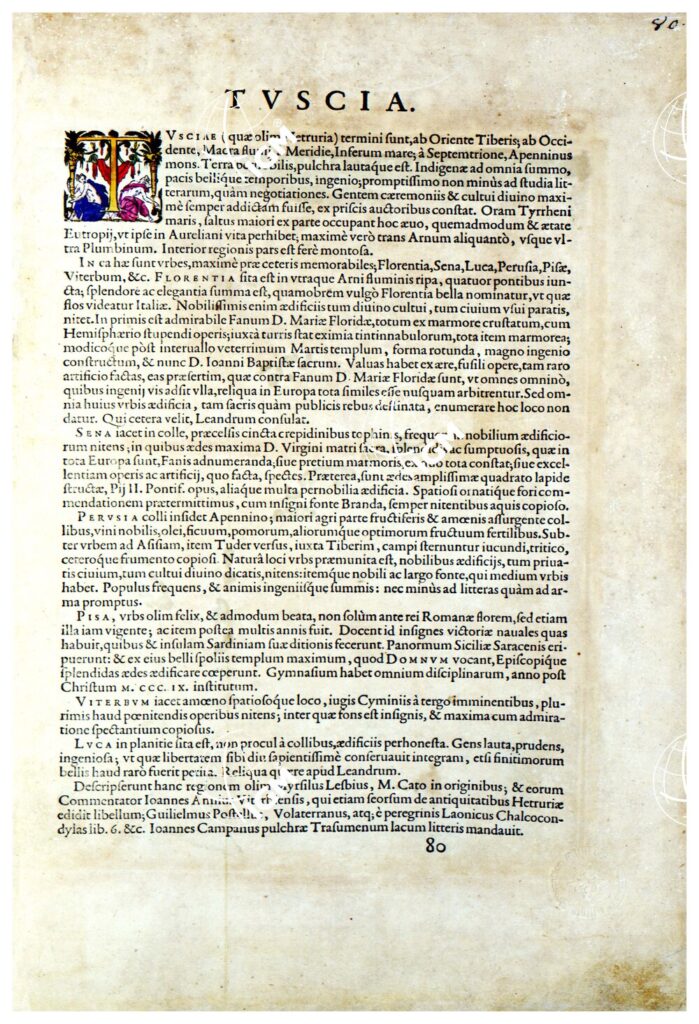 80
TVSCIA.
TVSCIAE (quæ olim Hetruria) termini sunt, ab Oriente Tiberis; ab Occi-
dente, Macra flu. Meridie, Inferum mare; à Septemtrione, Apenninus
mons. Terra nobilis, pulchra lautaque est. Indigenæ ad omnia summo,
pacis bellique temporibus, ingenio; promptissimo non minùs ad studia lit-
terarum, quàm negotiationes. Gentem cæremoniis & cultui diuino maxi-
mè semper addictam fuisse, ex priscis auctoribus constat. Oram Tyrrheni
maris, saltus maiori ex parte occupant hoc æuo, quemadmodum & ætate
Eutropij, vt ipse in Aureliani vita perhibet; maximè verò trans Arnum aliquantò, vsque vl-
tra Plumbinum. Interior regionis pars est ferè montosa.
IN ea hæ sunt vrbes, maximè præ ceteris memorabiles; Florentia, Sena, Luca, Perusia, Pisæ,
Viterbum, &c. FLORENTIA sita est in vtraque Arni fluminis ripa, quatuor pontibus iun-
cta; splendore ac elegantia summa est, quamobrem vulgò Florentia bella nominatur, vt quæ
flos videatur Italiæ. Nobilissimis enim ædificiis tum diuino cultui, tum ciuium vsui paratis,
nitet. In primis est admirabile Fanum D. Mariæ Floridæ, totum ex marmore crustatum, cum
Hemisphærio stupendi operis; iuxtà turris stat eximia tintinnabulorum, tota item marmorea;
modicoque pòst interuallo veterrimum Martis templum, forma rotunda, magno ingenio
constructum, & nunc D. Ioanni Baptistæ sacrum. Valuas habet ex ære, fusili opere, tam raro
artificio factas, eas præsertim, quæ contra Fanum D. Mariæ Floridæ sunt, vt omnes omninò,
quibus ingenij vis adsit vlla, reliqua in Europa tota similes esse nusquam arbitrentur. Sed om-
nia huius vrbis ædificia, tam sacris quàm publicis rebus destinata, enumerare hoc loco non
datur. Qui cetera velit, Leandrum consulat.
SENA iacet in colle, præcelsis cincta crepidinibus tophinis, frequens nobilium ædificio-
rum nitens; in quibus ædes maxima D. Virgini matri sacra, splendidis ac sumptuosis, quæ in
tota Europa sunt, Fanis adnumeranda; siue pretium marmoris, ex quo tota constat; siue excel-
lentiam operis ac artificij, quo facta, spectes. Præterea, sunt ædes amplissimæ quadrato lapide
structæ, Pij II. Pontif. opus, aliaque multa pernobilia ædificia. Spatiosi ornatique fori com-
mendationem prætermittimus, cum insigni fonte Branda, semper nitentibus aquis copioso.
PERVSIA colli insidet Apennino; maiori agri parte fructiferis & amœnis assurgente col-
libus, vini nobilis, olei, ficuum, pomorum, aliorumque optimorum fructuum fertilibus. Sub-
ter vrbem ad Asisiam, item Tuder versus, iuxta Tiberim, campi sternuntur iucundi, tritico,
ceteroque frumento copiosi. Naturâ loci vrbs præmunita est, nobilibus ædificijs, tum priua-
tis ciuium, tum cultui diuino dicatis, nitens: itemque nobili ac largo fonte, qui medium vrbis
habet. Populus frequens, & animis ingeniisque summis: nec minùs ad litteras quàm ad ar-
ma promptus.
PISA, vrbs olim felix, & admodum beata, non solùm ante rei Romanæ florem, sed etiam
illa iam vigente; ac item postea multis annis fuit. Docent id insignes victoriæ nauales quas
habuit, quibus & insulam Sardiniam suæ ditionis fecerunt. Panormum Siciliæ Saracenis eri-
puerunt: & ex eius belli spoliis templum maximum, quod DOMNVM vocant, Episcopique
splendidas ædes ædificare cœperunt. Gymnasium habet omnium disciplinarum, anno post
Christum M. CCC. IX. institutum.
VITERBVM iacet amœno spatiosoque loco, iugis Cyminiis à tergo imminentibus, plu-
rimis haud pœnitendis operibus nitens; inter quæ fons est insignis, & maxima cum admira-
tione spectantium copiosus.
LVCA in planitie sita est, non procul à collibus, ædificiis perhonesta. Gens lauta, prudens,
ingeniosa; vt quæ libertatem sibi diu sapientissimè conseruauit integram, etsi finitimorum
bellis haud rarò fuerit petita. Reliqua quære apud Leandrum.
Descripserunt hanc regionem olim Myrsilus Lesbius, M. Cato in originibus; & eorum
Commentator Ioannes Annius Viterbensis, qui etiam seorsum de antiquitatibus Hetruriæ
edidit libellum; Guilielmus Postellus, Volaterranus, atq; è peregrinis Laonicus Chalcocon-
dylas lib. 6. &c. Ioannes Campanus pulchræ Trasumenum lacum litteris mandauit.
80